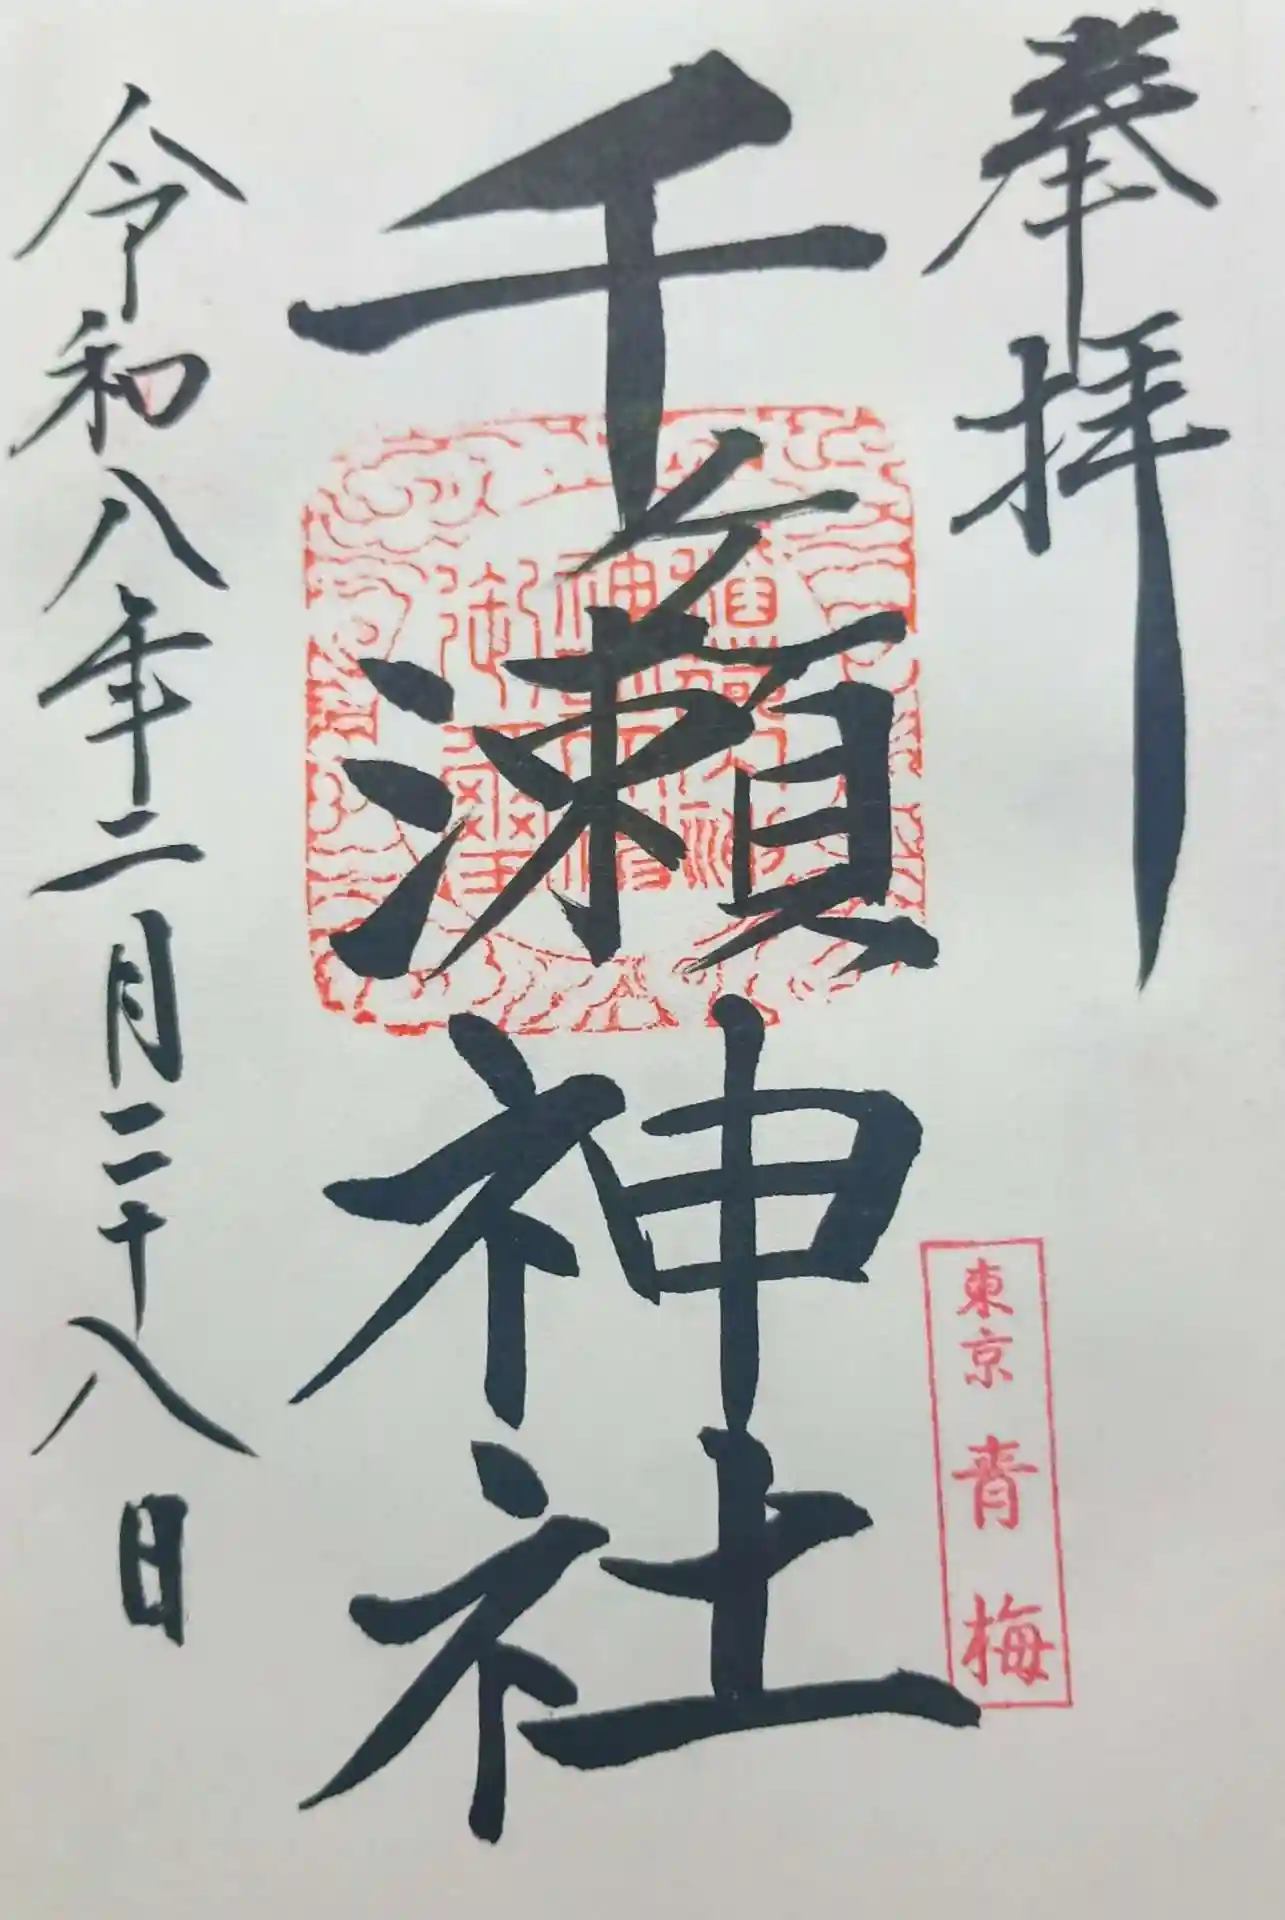 奉拝
東京 青梅
千ヶ瀬神社
令和八年二月二十八日